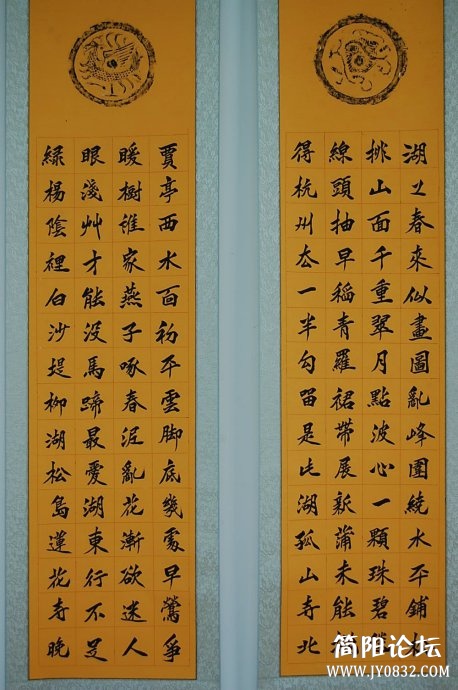 湖上春來似畫圖亂峰圍繞水平鋪
排山面千重翠月點波心一顆珠碧
線頭抽早稻青羅裙帶展新蒲未能
得杭州去一半勾留是此湖孤山寺北
賈亭西水面初平雲脚底幾處早鶯爭
暖樹誰家燕子啄春泥亂花漸欲迷人
眼淺艸才能沒馬蹄最愛湖東行不足
緑楊陰裡白沙堤柳湖松島蓮花寺晚
简阳论坛
www.JY0832.com